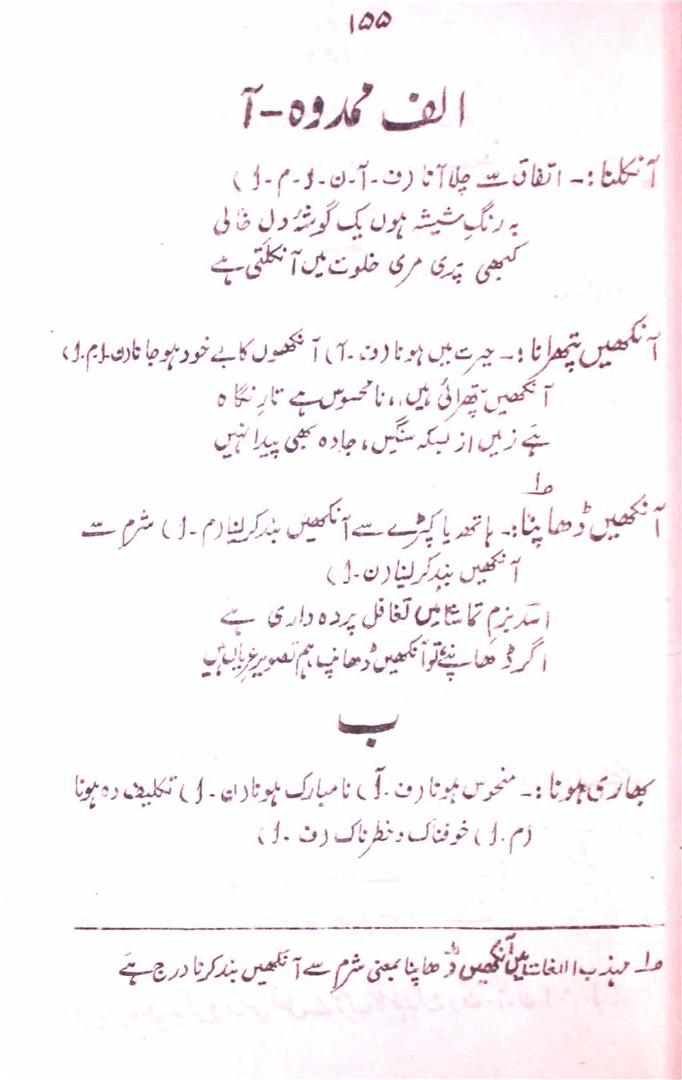 ۱۵۵
الف ممدوہ - آ
آنکلنا :- اتفاق سے چلا آنا (ف-آ-ن-ا-م-ا)
بہ رنگِ شیشہ ہوں یک گوشۂ دل خالی
کبھی پری مری خلوت میں آنکلتی ہے
آنکھیں پتھرانا :- حیرت میں ہونا (ف-آ) آنکھوں کا بے خود ہو جانا (ن-ا-م-ا)
آنکھیں پتھرائی ہیں، نا محسوس ہے تارِ نگاہ
ہے زمیں از بسکہ سنگیں، جادہ بھی پیدا نہیں
آنکھیں ڈھاپنا؂۱ :- ہاتھ یا کپڑے سے آنکھیں بند کر لینا (م-ا) شرم سے
آنکھیں بند کر لینا (ن-ا)
اسد بزمِ تماشا میں تغافل پردہ داری ہے
اگر ڈھاپنئے تو آنکھیں ڈھانپ ہم تصویرِ عریاں ہیں
ب
بھاری ہونا :- منحوس ہونا (ف-آ) نا مبارک ہونا (ن-ا) تکلیف دہ ہونا
(م-ا) خوفناک و خطرناک (ف-ا)
؂۱ مہذب اللغات میں آنکھیں ڈھاپنا بمعنی شرم سے آنکھیں بند کرنا درج ہے